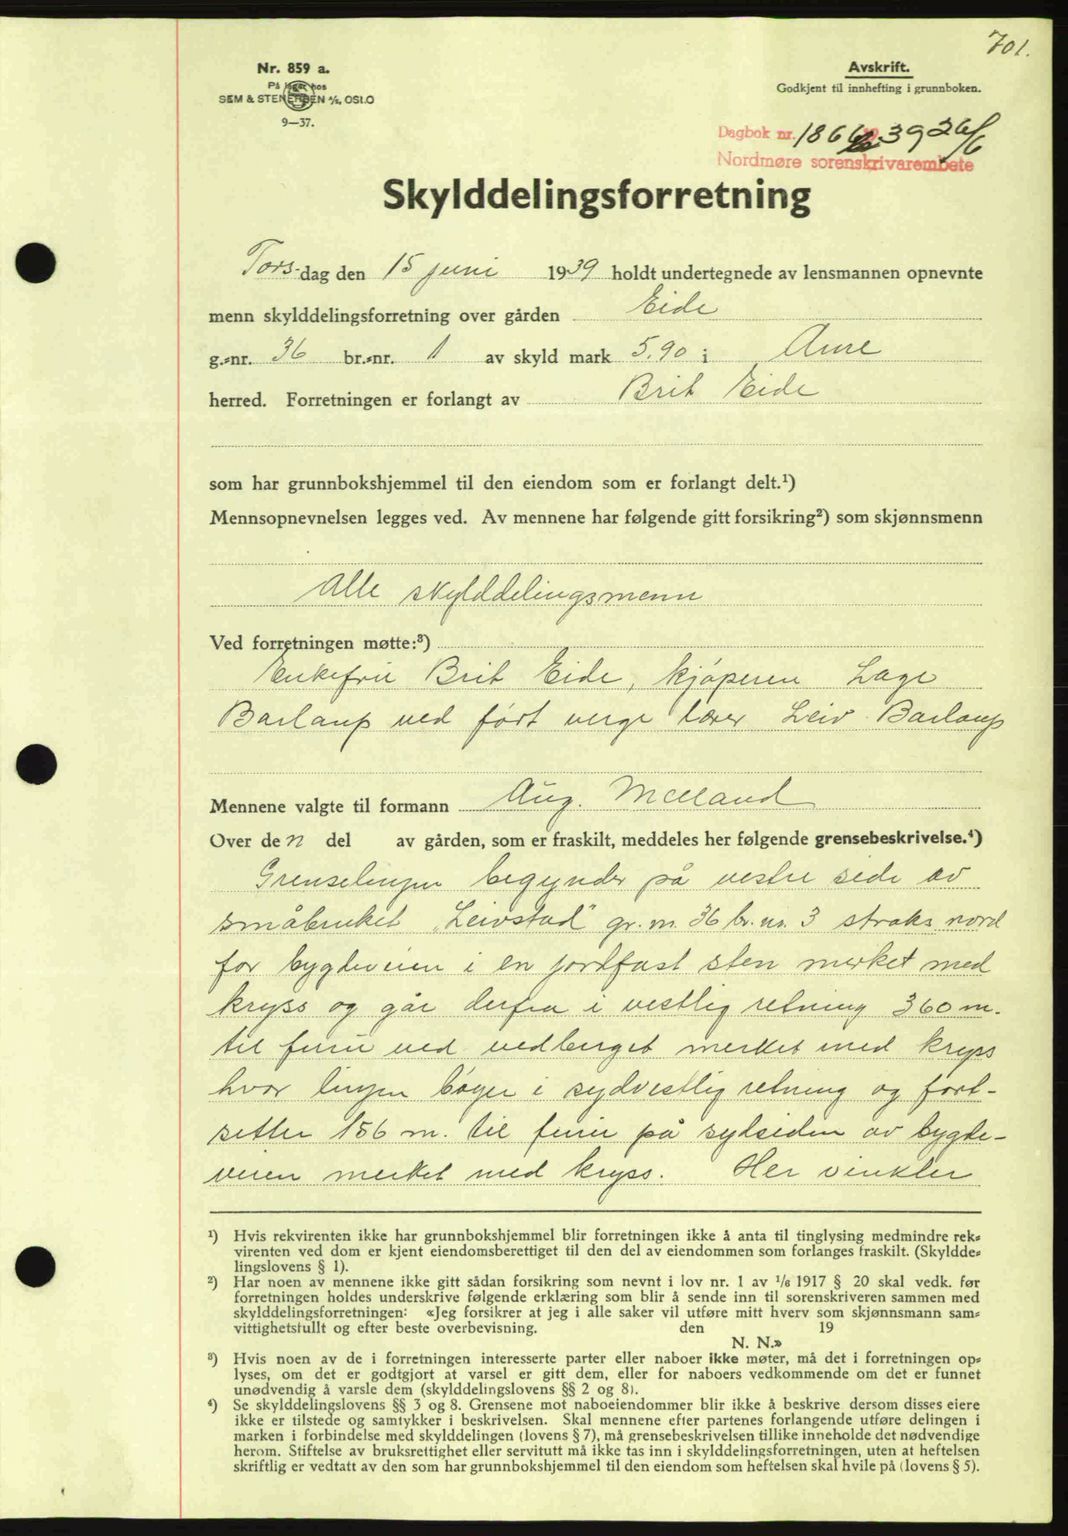 701.
Nr. 859 a.
På lager hos
SEM & STENERSEN A/S, OSLO
9—37.
Avskrift.
Godkjent til innhefting i grunnboken.
Dagbok nr. 1866 39 26/6
Nordmøre sorenskrivarembete
Skylddelingsforretning
Tors-dag den 15 juni 1939 holdt undertegnede av lensmannen opnevnte
menn skylddelingsforretning over gården Eide
g.-nr. 36 br.-nr. 1 av skyld mark 5,90 i Aure
herred. Forretningen er forlangt av Brit Eide
som har grunnbokshjemmel til den eiendom som er forlangt delt.¹)
Mennsopnevnelsen legges ved. Av mennene har følgende gitt forsikring²) som skjønnsmenn
Alle skylddelingsmenn
Ved forretningen møtte:³)
Enkefru Brit Eide, kjøperen Lage
Barlaup ved verge lærer Leiv Barlaup
Mennene valgte til formann Aug. Melland
Over den del av gården, som er fraskilt, meddeles her følgende grensebeskrivelse.⁴)
Grenselinjen begynder på vestre side av
småbruket "Leivstad" gr. nr. 36 br. nr. 3 straks nord
for bygdeveien i en jordfast sten merket med
kryss og går derfra i vestlig retning 360 m.
til furu ved vedberget merket med kryss
hvor linjen bøyer i sydvestlig retning og fort-
setter 156 m. til furu på sydsiden av bygde-
veien merket med kryss. Her vinkler
¹) Hvis rekvirenten ikke har grunnbokshjemmel blir forretningen ikke å anta til tinglysing medmindre rek-
virenten ved dom er kjent eiendomsberettiget til den del av eiendommen som forlanges fraskilt. (Skyldde-
lingslovens § 1).
²) Har noen av mennene ikke gitt sådan forsikring som nevnt i lov nr. 1 av 1/6 1917 § 20 skal vedk. før
forretningen holdes underskrive følgende erklæring som blir å sende inn til sorenskriveren sammen med
skylddelingsforretningen: «Jeg forsikrer at jeg i alle saker vil utføre mitt hverv som skjønnsmann sam-
vittighetsfullt og efter beste overbevisning. den 19
N. N.»
³) Hvis noen av de i forretningen interesserte parter eller naboer ikke møter, må det i forretningen op-
lyses, om det er godtgjort at varsel er gitt dem, eller for naboers vedkommende om det er funnet
unødvendig å varsle dem (skylddelingslovens §§ 2 og 8).
⁴) Se skylddelingslovens §§ 3 og 8. Grensene mot naboeiendommer blir ikke å beskrive dersom disses eiere
ikke er tilstede og samtykker i beskrivelsen. Skal mennene efter partenes forlangende utføre delingen i
marken i forbindelse med skylddelingen (lovens § 7), må grensebeskrivelsen tillike inneholde det nødvendige
herom. Stiftelse av bruksrettighet eller servitutt må ikke tas inn i skylddelingsforretningen, uten at heftelsen
skriftlig er vedtatt av den som har grunnbokshjemmel til den eiendom som heftelsen skal hvile på (lovens § 5).